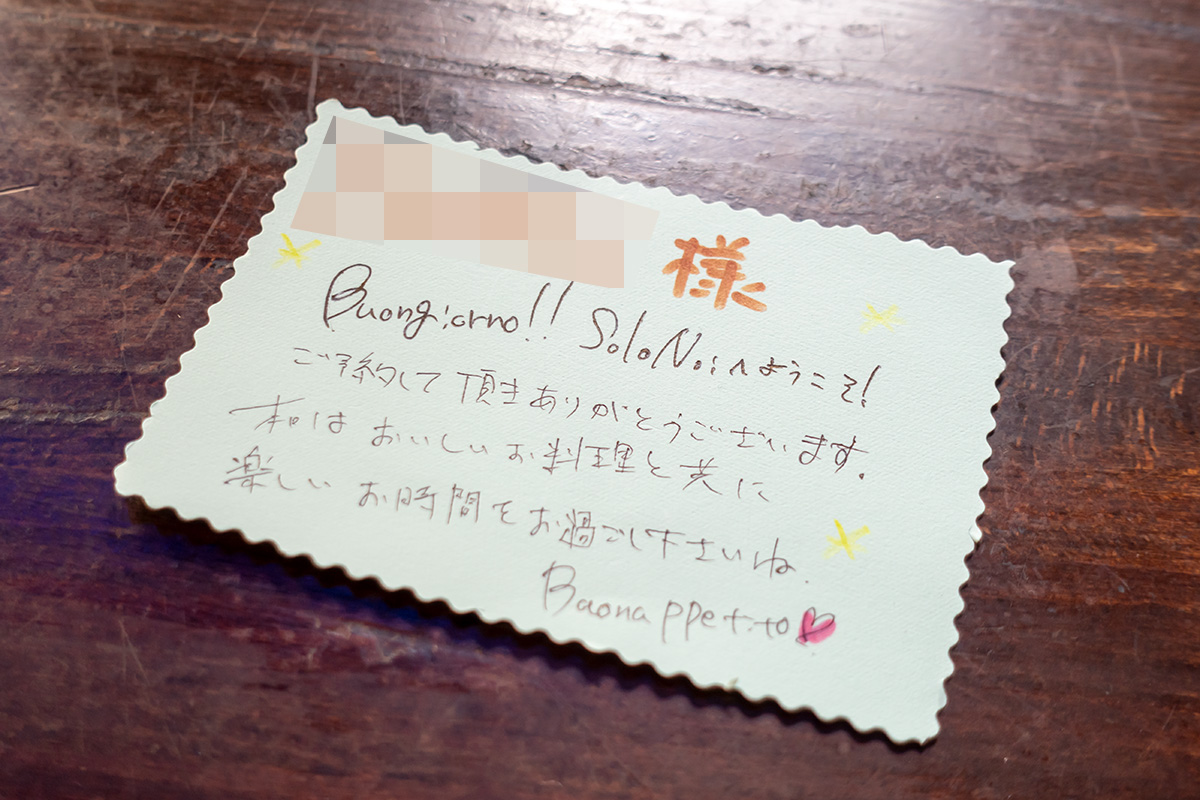 様
Buongiorno!! SoloNoiへようこそ!
ご予約して頂きありがとうございます。
本日は おいしいお料理と共に
楽しい お時間をお過ごし下さいね.
Buona ppetito